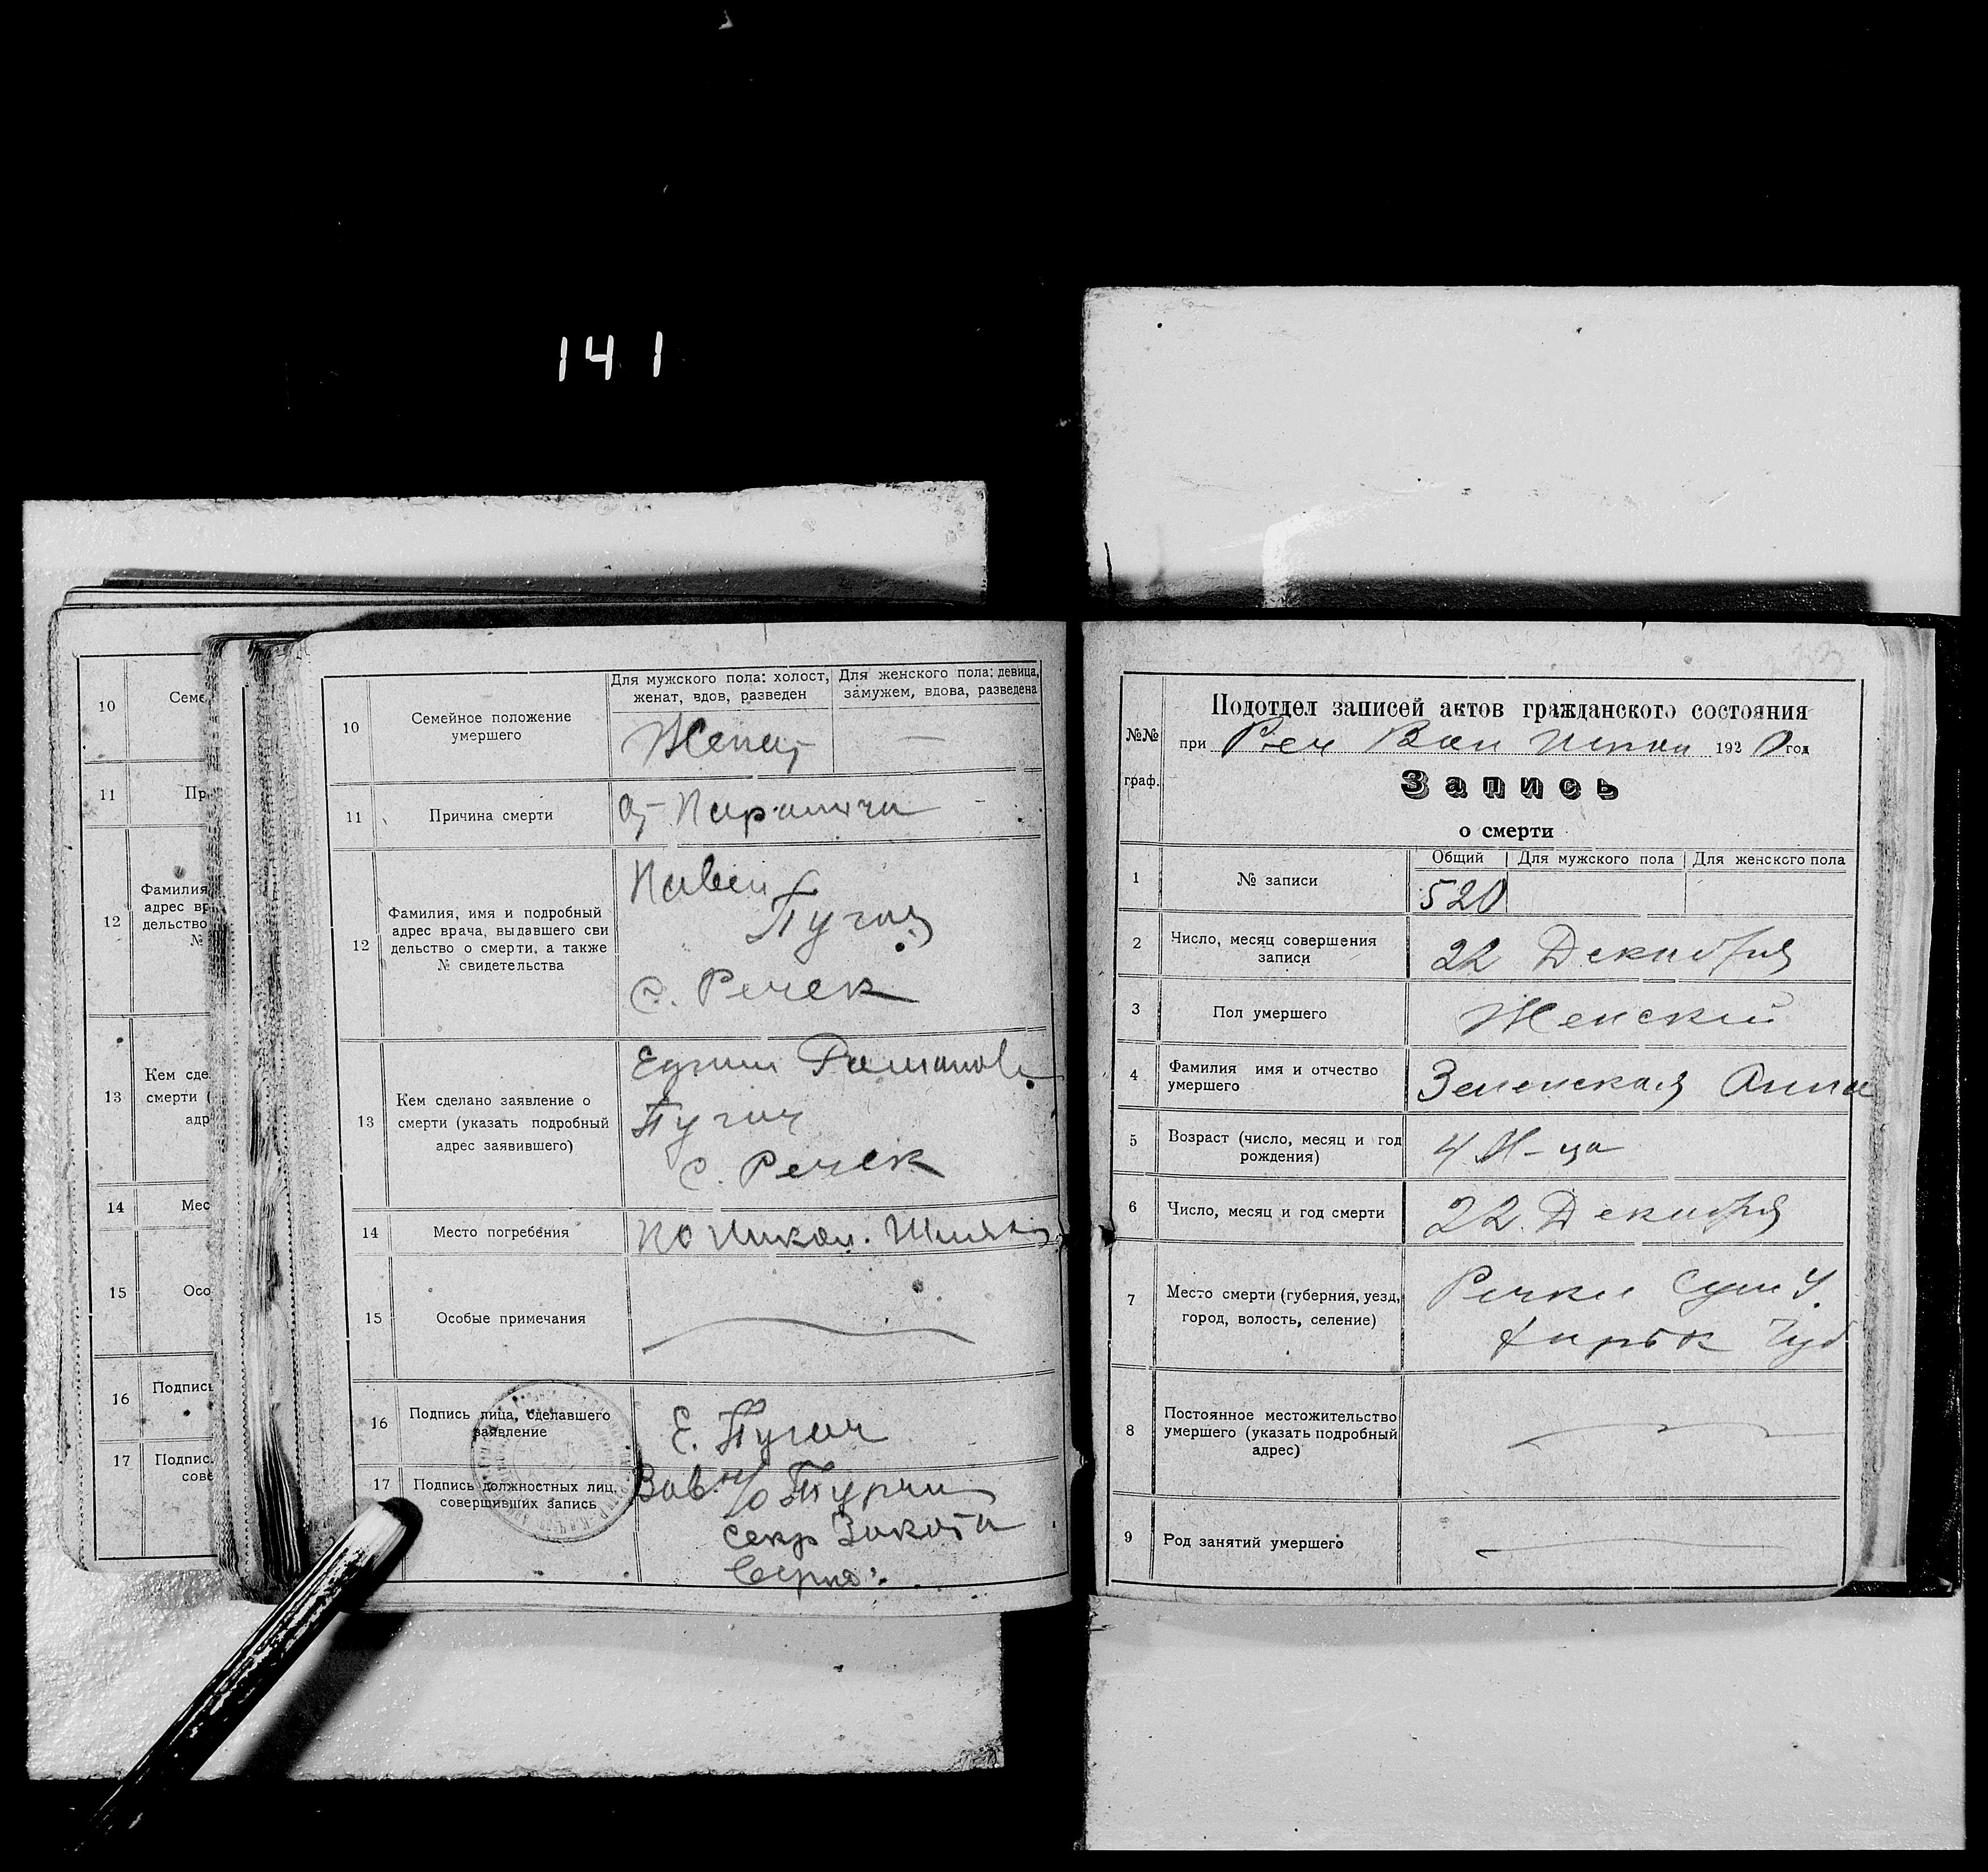 141
10
Семе
11
Пр
12
Фамилия
адрес вр
дельство
№
13
Кем сде
смерти (
адр
14
Мес
15
Осо
16
Подпись
17
Подпис
сове
10
Семейное положение
умершего
Для мужского пола: холост,
женат, вдов, разведен
Для женского пола: девица,
замужем, вдова, разведена
Женат
—
11
Причина смерти
от Паралича
12
Фамилия, имя и подробный
адрес врача, выдавшего сви
дельство о смерти, а также
№ свидетельства
Павел
Пугач
с. Речек
13
Кем сделано заявление о
смерти (указать подробный
адрес заявившего)
Романов
Пугач
с. Речек
14
Место погребения
по Никол.
15
Особые примечания
16
Подпись лица, сделавшего
заявление
Е. Пугач
17
Подпись должностных лиц,
совершивших запись
Зав.
секр
№№
граф.
Подотдел записей актов гражданского состояния
при Реч Вол 1920 год
Запись
о смерти
1
№ записи
Общий
Для мужского пола
Для женского пола
520
2
Число, месяц совершения
записи
22 Декабря
3
Пол умершего
Женский
4
Фамилия имя и отчество
умершего
Зеленская Анна
5
Возраст (число, месяц и год
рождения)
4 М-ца
6
Число, месяц и год смерти
22 Декабря
7
Место смерти (губерния, уезд,
город, волость, селение)
Речки Сум У.
Харьк Губ
8
Постоянное местожительство
умершего (указать подробный
адрес)
9
Род занятий умершего